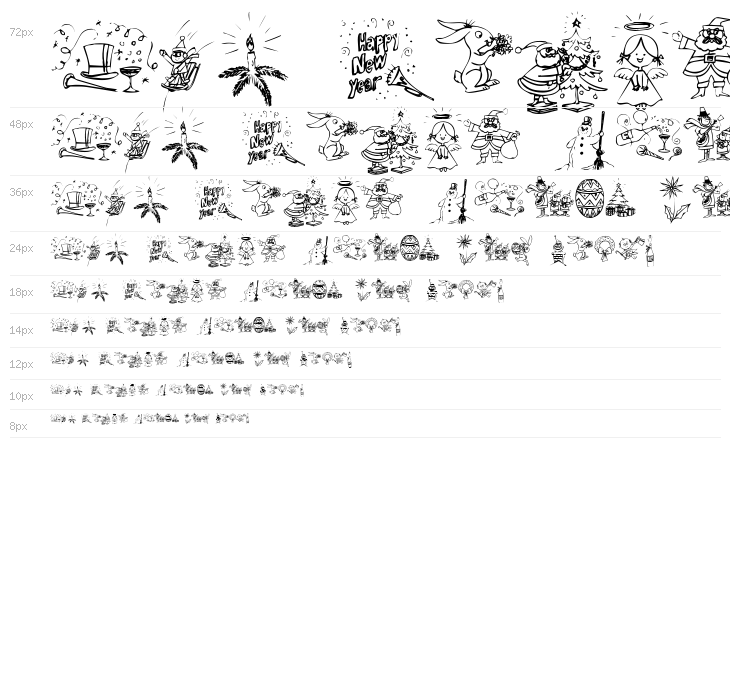 72px
Happy
New
Year
48px
Happy
New
Year
36px
Happy
New
Year
24px
18px
14px
12px
10px
8px